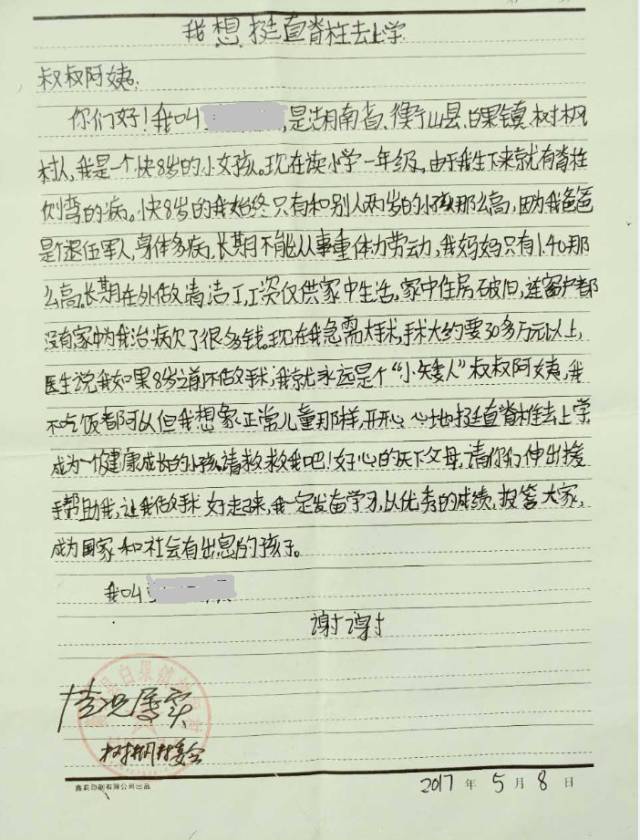 我想挺直脊柱去上学
叔叔阿姨.
你们好！我叫 ,是湖南省、衡山县、白果镇、树枫
村人,我是一个快8岁的小女孩。现在读小学一年级。由于我生下来就有脊柱
侧弯的病。快8岁的我始终只有和别人两岁的小孩那么高,因为我爸爸
是个退伍军人,身体多病,长期不能从事重体力劳动,我妈妈只有1.40那
么高。长期在外做清洁工,工资仅供家中生活。家中住房破旧,连窗户都
没有家中为我治病欠了很多钱。现在我急需大手术,手术大约要30多万元以上,
医生说我如果8岁之前不做手术,我就永远是个“小矮人”叔叔阿姨,我
不吃饭都可以但我想象正常儿童那样,开开心心地挺直脊椎去上学
成为一个健康成长的小孩。请救救我吧！好心的天下父母,请你们伸出援
手帮助我,让我做手术好起来,我一定发奋学习,以优秀的成绩,报答大家,
成为国家和社会有出息的孩子。
我叫
谢谢
情况属实
树枫村委会
2017年5月8日
鑫彩印刷有限公司出品